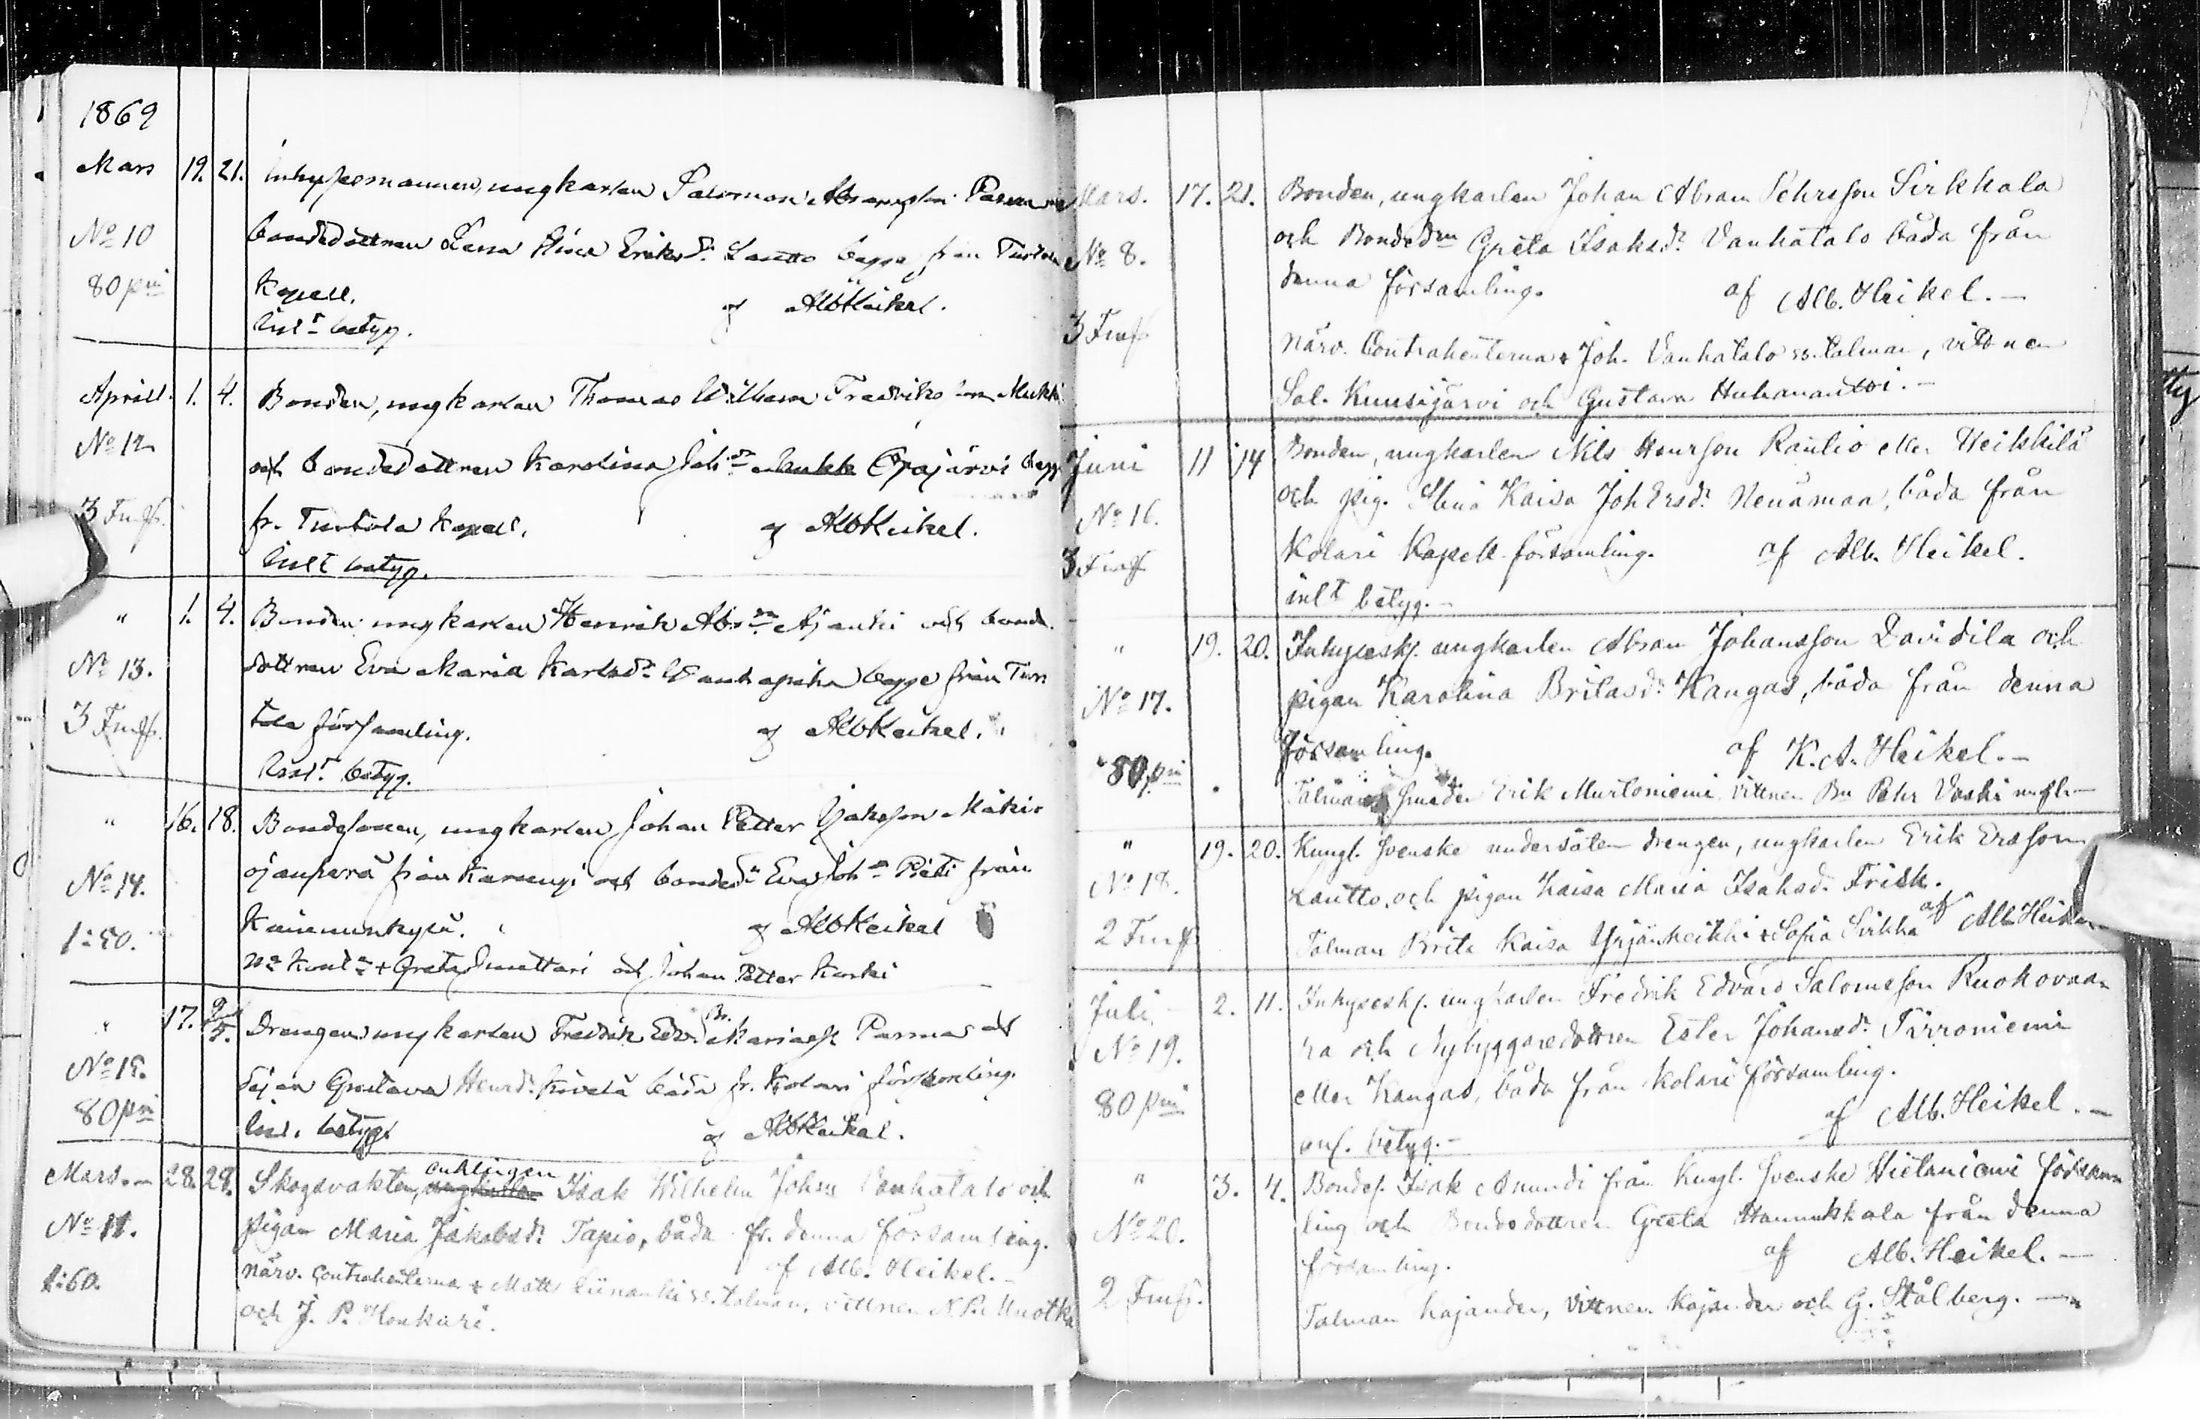 1869
Mars 19. 21. Inhysesmannen, ungkarlen Salomon Abramss.
No 10 bondedottren Lena Stina Eriksd: Lautto begge från Turtola
80 pni Kapell.
Inlt betyg. af AlbHeikel.
Aprill. 1. 4. Bonden, ungkarlen Thomas Wilhelm Fredrikssson Mukka
No 12 och bondedottren Karolina Johdr Mukka Opajärvi begge
3 Fmf. fr. Turtola Kapell. af AlbHeikel.
Inlt betyg.
" 1. 4. Bonden ungkarlen Henrik Absn Ajanki och bonde
No 13. dottren Eva Maria Karlsdr Vanhapiha begge från Turtola
3 Fmf. församling. af AlbHeikel.
betyg.
" 16. 18. Bondesonen, ungkarlen Johan Petter
från Karungi och bondedn Eva Johdr från
No 14. Kainuunkylä. af AlbHeikel
1:50.
och Johan Petter Koski
" 17. 9/5. Drengen ungkarlen Fredrik Edv. Br. Mariaess Parma och
No 15. pigan Gustava Henrd: Kivelä båda fr. Kolari församling.
80 pni Inl. betyg. af AlbHeikel.
Mars.- 28. 29. Skogsvakten, ungkarlen enklingen Isak Wilhelm Johss Vanhatalo och
No 11. pigan Maria Jakobsd: Tapio, båda fr. denna församling.
1:60. af Alb. Heikel.-
närv. Contrahenterna + Matts Liinanki ss. talman, vittnen N. P. Muotka
och J. P. Honkuri.
Mars. 17. 21. Bonden, ungkarlen Johan Abram Pehrsson Sirkkala
No 8. och Bondedm Greta Isaksd: Vanhatalo båda från
denna församling. af Alb. Heikel.-
3 Fmf. närv. Contrahenterna + Joh. Vanhatalo ss. talman, vittnen
Sal. Kuusijärvi och Gustava Huhanantti.-
Juni 11 14 Bonden, ungkarlen Nils Henrsson Raulio eller Heikkilä
No 16. och pig. Stina Kaisa JohErsd: Nenämaa, båda från
3 Fmf Kolari Kapell församling. af Alb. Heikel.
inlt betyg.-
" 19. 20. Inhysesk. ungkarlen Abram Johansson Davidila och
No 17. pigan Karolina Britasd: Kangas, båda från denna
80 pni församling. af K.A. Heikel.-
Talman Smeden Erik Murtoniemi vittnen Bn Pehr Vaski
" 19. 20. Kungl. Svenske undersåten drengen, ungkarlen Erik Ersson
No 18. Lautto, och pigan Kaisa Maria Isaksd. Frisk.
2 Fmf Talman Brita Kaisa Yrjänheikki + Sofia Sirkka af Alb. Heikel
Juli 2. 11. Inhysesk. ungkarlen Fredrik Edvard Salomsson Ruokovaa-
No 19. ra och Nybyggaredottren Ester Johansd: Törröniemi
80 pni eller Kangas, båda från Kolari församling.
af Alb. Heikel.-
betyg.-
" 3. 4. Bondes. Isak Anundi från Kungl. Svenske Hietaniemi försam
No 20. ling och Bondedottren Greta Hannukkala från denna
församling. af Alb. Heikel.-
2 Fmf. Talman Kajander, vittnen Kajander och G. Stålberg.-